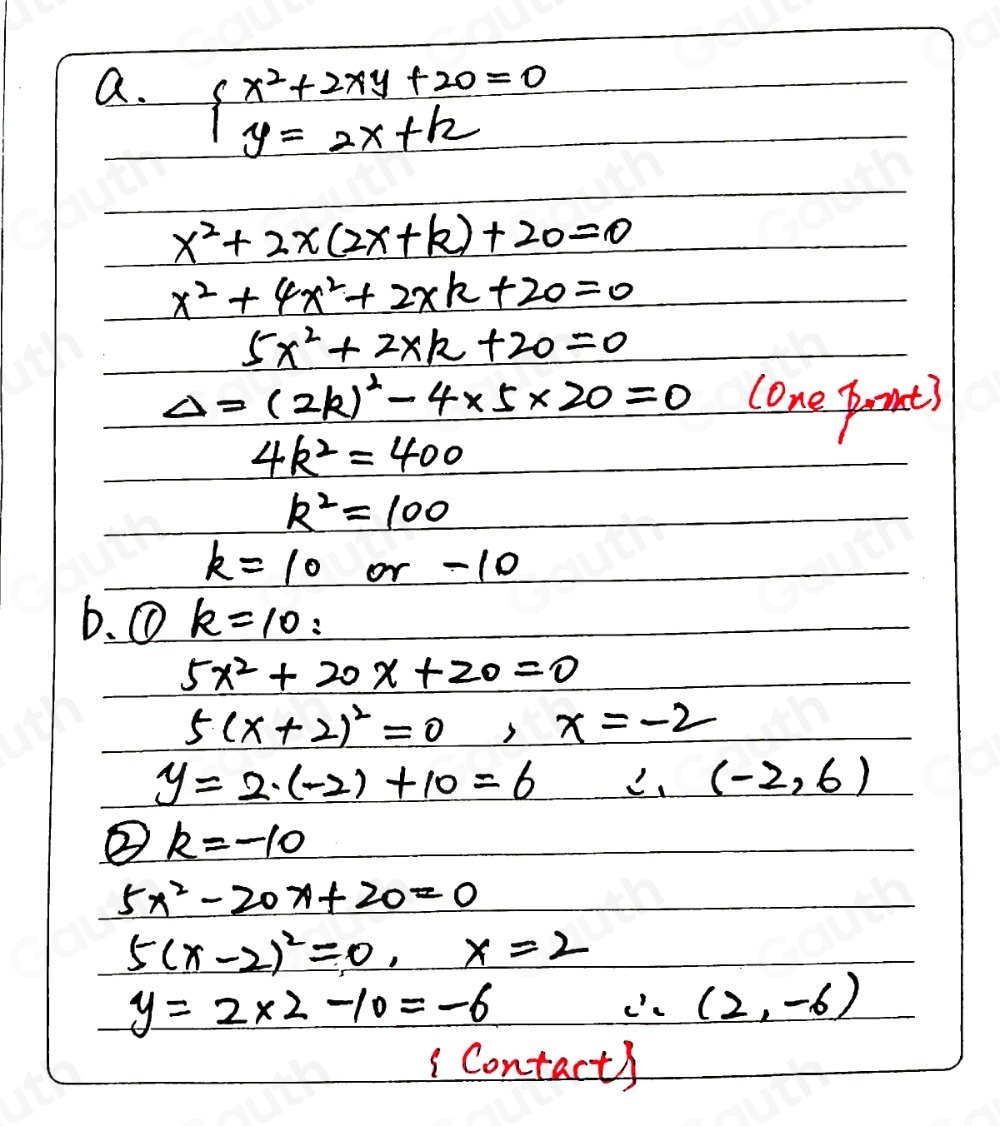 a. { x²+2xy+20=0
y= 2x+k
x²+2x(2x+k)+20=0
x²+4x²+2xk+20=0
5x²+2xk+20=0
△=(2k)²-4×5×20=0 (One point}
4k²=400
k²=100
k=10 or -10
b. ① k=10:
5x²+20x+20=0
5(x+2)²=0 , x=-2
y=2·(-2)+10=6 ∴ (-2,6)
② k=-10
5x²-20x+20=0
5(x-2)²=0, x=2
y=2×2-10=-6 ∴ (2,-6)
{Contact}